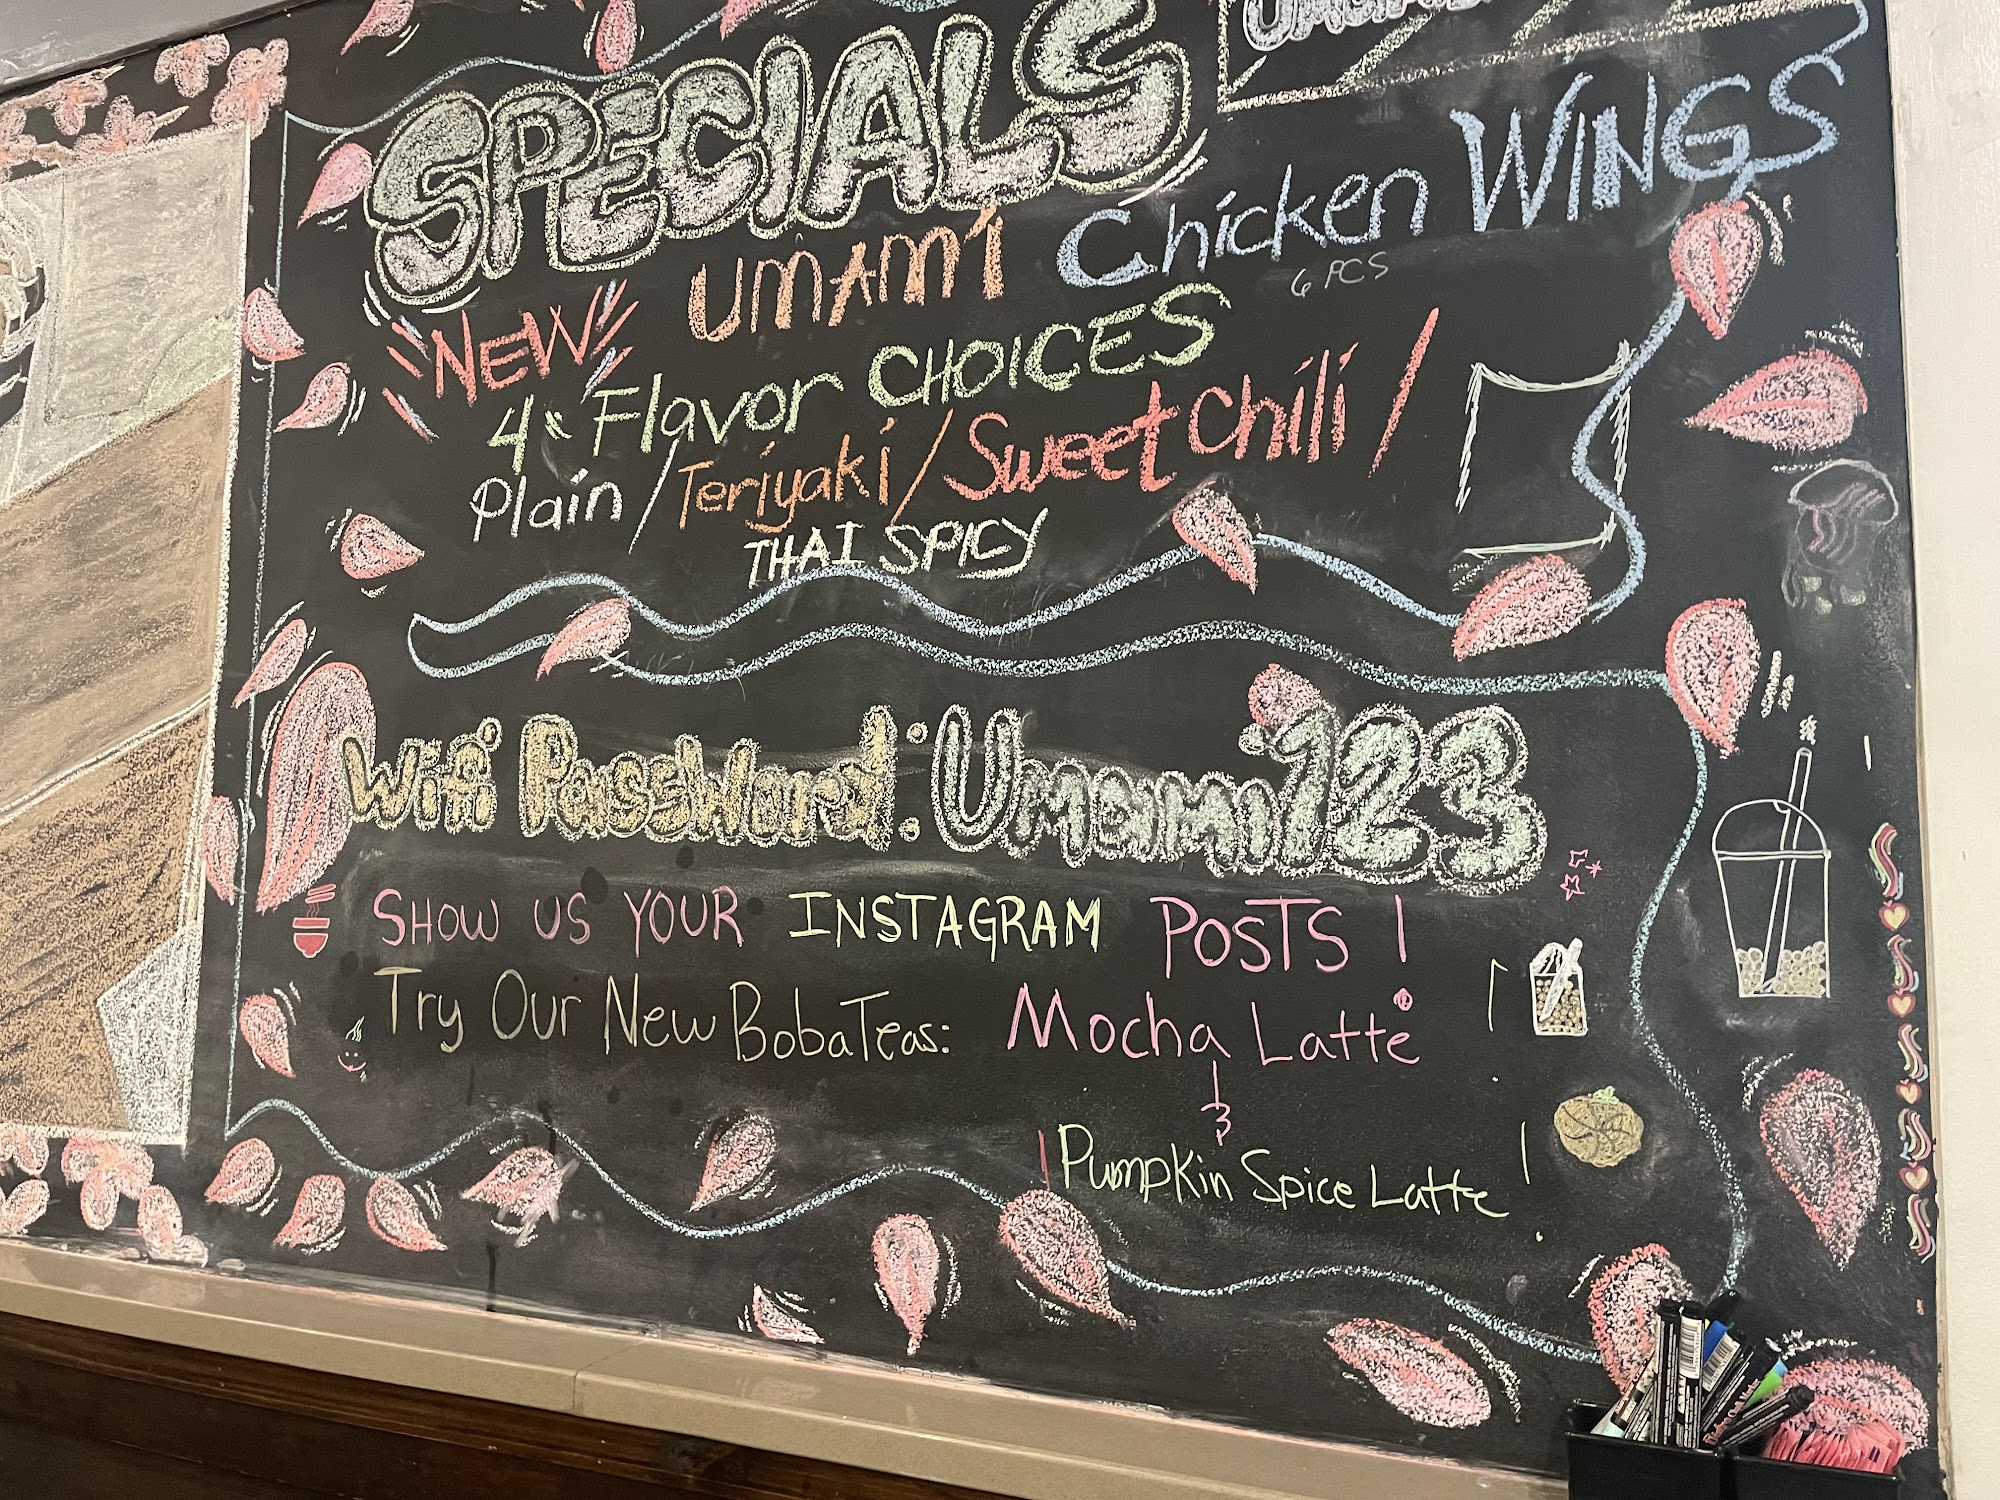 SPECIALS
NEW UMAMI Chicken WINGS
6 PCS
4 Flavor CHOICES
Plain / Teriyaki / Sweet Chili /
THAI SPICY
Wifi Password: Umami123
SHOW US YOUR INSTAGRAM POSTS!
Try Our New Boba Teas: Mocha Latte
&
Pumpkin Spice Latte